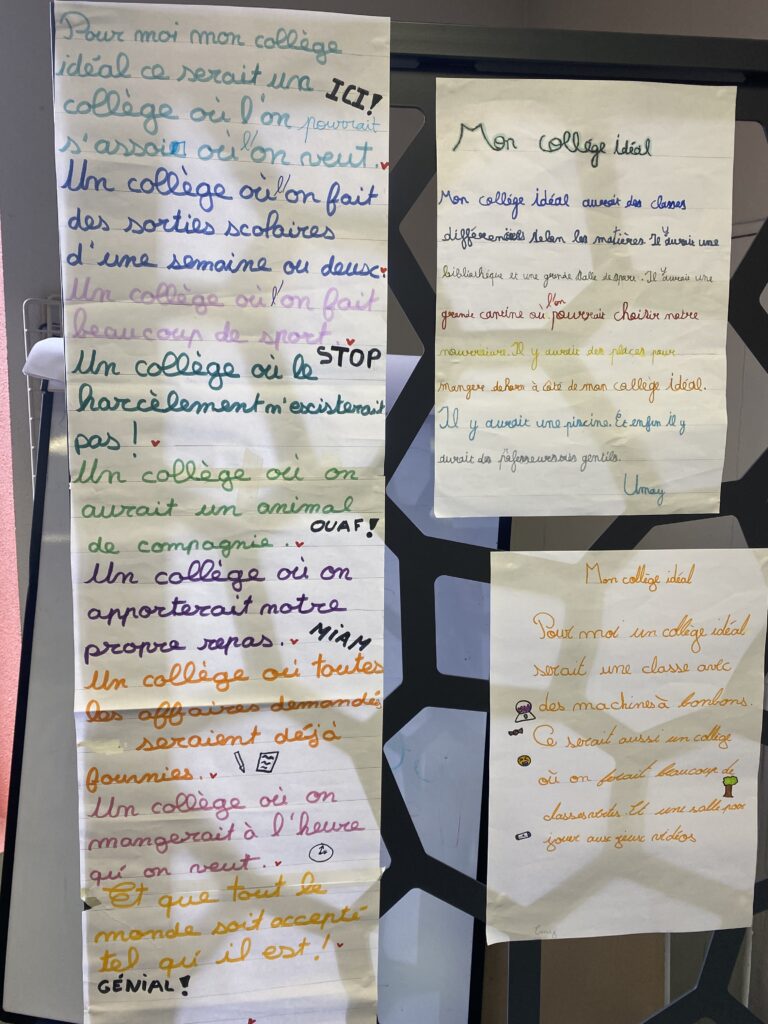 Pour moi mon collège
idéal ce serait un
ICI!
collège où l'on pourrait
s'assoir où l'on veut.
Un collège où l'on fait
des sorties scolaires
d'une semaine ou deux.
Un collège où l'on fait
beaucoup de sport.
STOP
Un collège où le
harcèlement n'escisterait
pas !
Un collège où on
aurait un animal
OUAF!
de compagnie.
Un collège où on
apporterait notre
propre repas. MIAM
Un collège où toutes
les affaires demandés
seraient déjà
fournies.
Un collège où on
mangerait à l'heure
qu'on veut.
Et que tout le
monde soit accepté
tel qu'il est !
GÉNIAL!
Mon collége idéal
Mon collége idéal aurait des classes
différentes selon les matières. Il y aurait une
bibliathèque et une grande salle de sport. Il y aurait une
grande cantine où l'on pourrait choisir notre
nourriture. Il y aurait des places pour
manger dehors à côté de mon collège idéal.
Il y aurait une piscine. Et enfin il y
aurait des professeurs gentils.
Umay
Mon collège idéal
Pour moi un collège idéal
serait une classe avec
des machines à bonbons.
Ce serait aussi un collège
où on ferait beaucoup de
classes vertes. Et une salle pour
jouer aux jeux vidéos